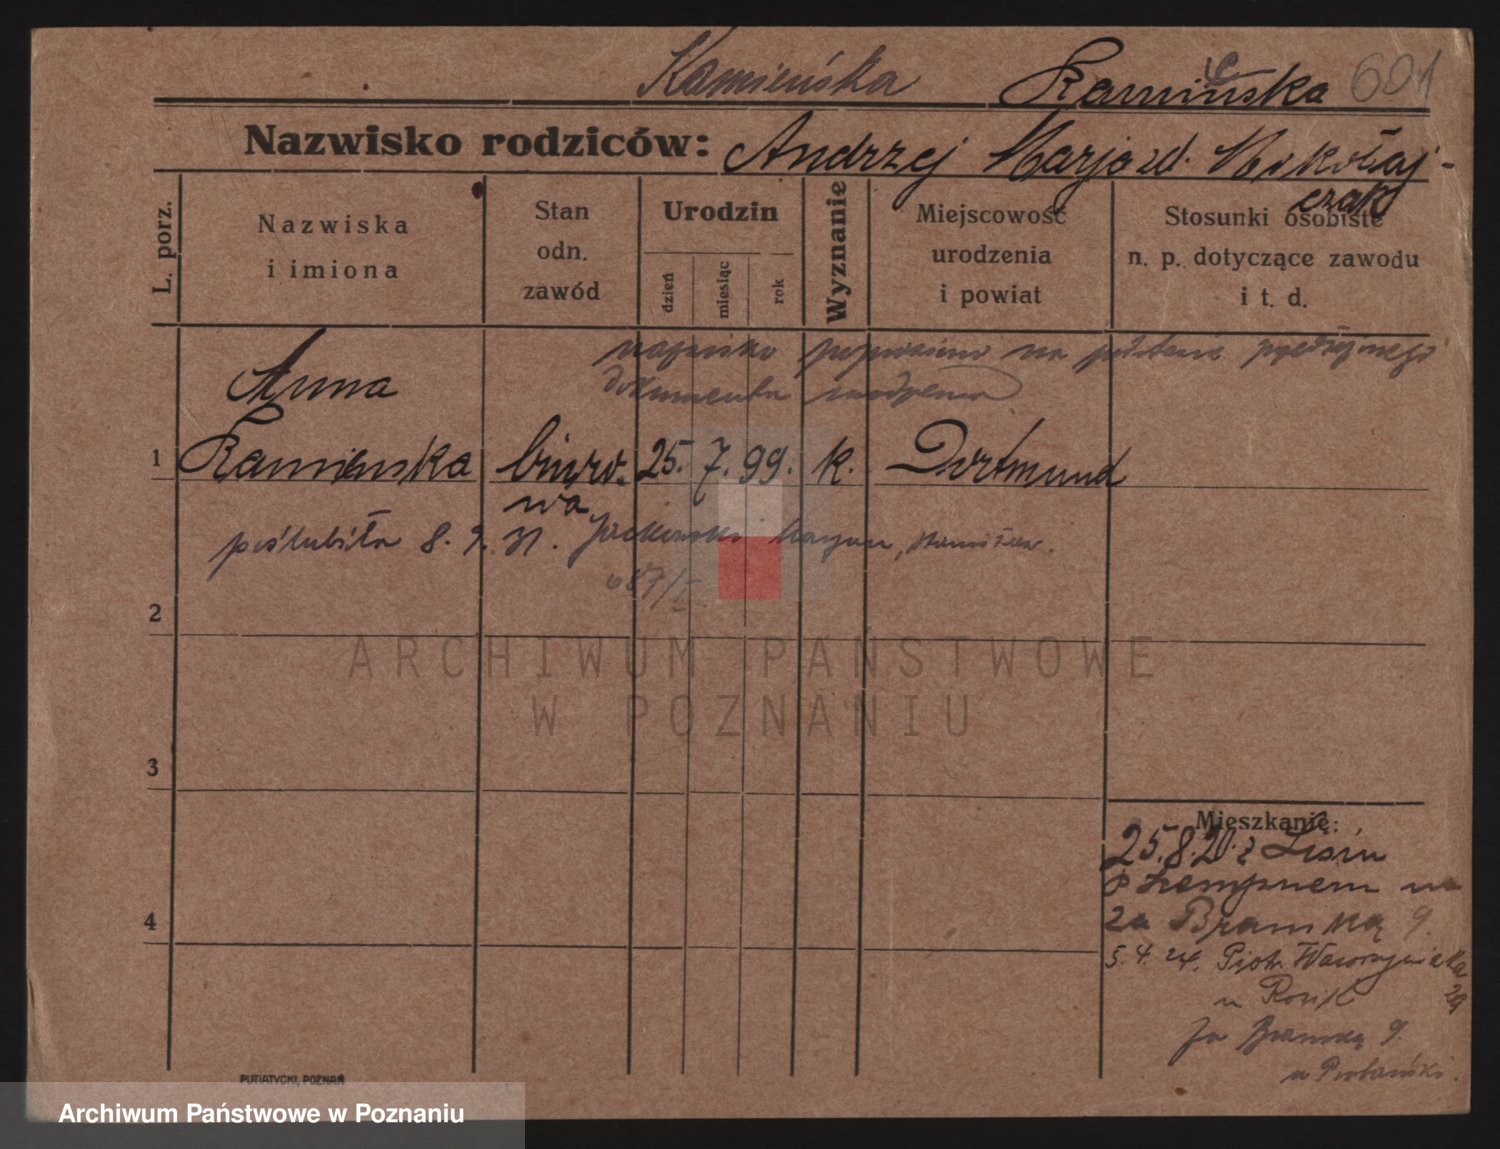 Kamieńska Kamińska 601
ie
Nazwisko rodziców: Andrzej Marja zd. Mikołaj-
czak
L. porz.
Nazwiska
i imiona
Stan
odn.
zawód
Urodzin
dzień
miesiąc
rok
Wyznanie
Miejscowość
urodzenia
i powiat
Stosunki osobiste
n. p. dotyczące zawodu
i t. d.
nazwisko poprawiono na podstawie
dokumentu urodzenia
Anna
1 Kamieńska biuro- 25. 7. 99. k. Dortmund
wa
poślubiła 8. 9. 31. Jackowski Maryan, Stanisław.
2
3
4
Mieszkanie:
25.8.20. z Lisin
p Kempnem na
za Bramką 9.
5. 4. 24. Piotr Wawrzyniaka
29
u Rosik
Za Bramką 9.
u
PUTIATYCKI, POZNAŃ
ARCHIWUM PAŃSTWOWE
W POZNANIU
Archiwum Państwowe w Poznaniu